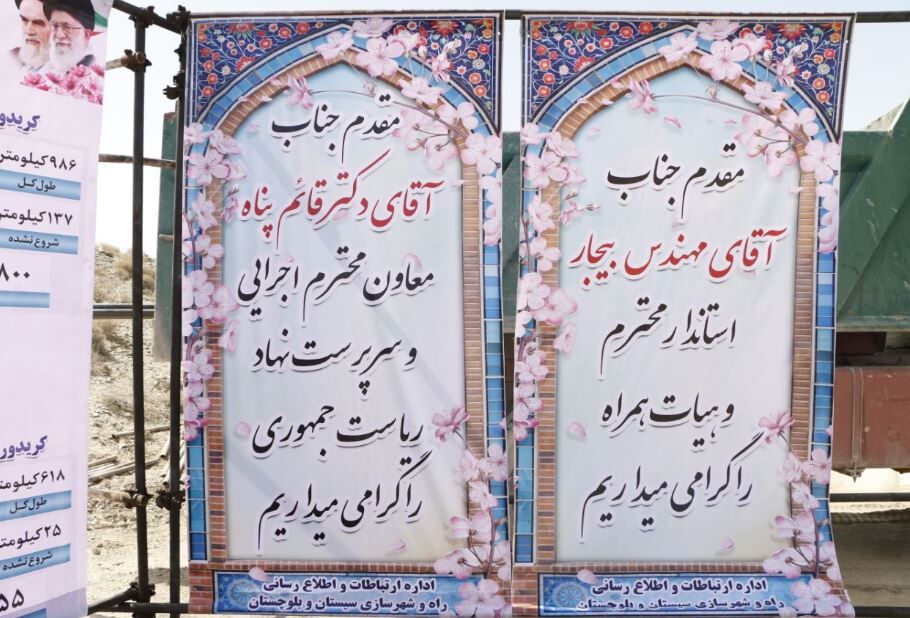 مقدم جناب
آقای مهندس بیجار
استاندار محترم
و هیات همراه
را گرامی میداریم
اداره ارتباطات و اطلاع رسانی
راه و شهرسازی سیستان و بلوچستان
مقدم جناب
آقای دکتر قائم پناه
معاون محترم اجرایی
و سرپرست نهاد
ریاست جمهوری
را گرامی میداریم
اداره ارتباطات و اطلاع رسانی
راه و شهرسازی سیستان و بلوچستان
کریدور
۹۸۶ کیلومتر
طول کل
۱۳۷ کیلومتر
شروع نشده
۸۰۰
کریدور
۶۱۸ کیلومتر
طول کل
۲۵ کیلومتر
شروع نشده